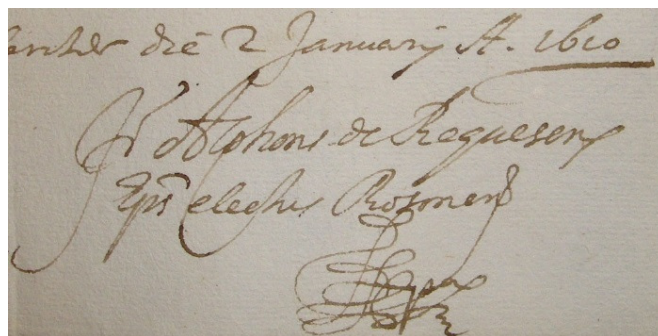 die 2 Januarij A. 1610
Fr Alphons de Requesens
Eps electus Rosmens